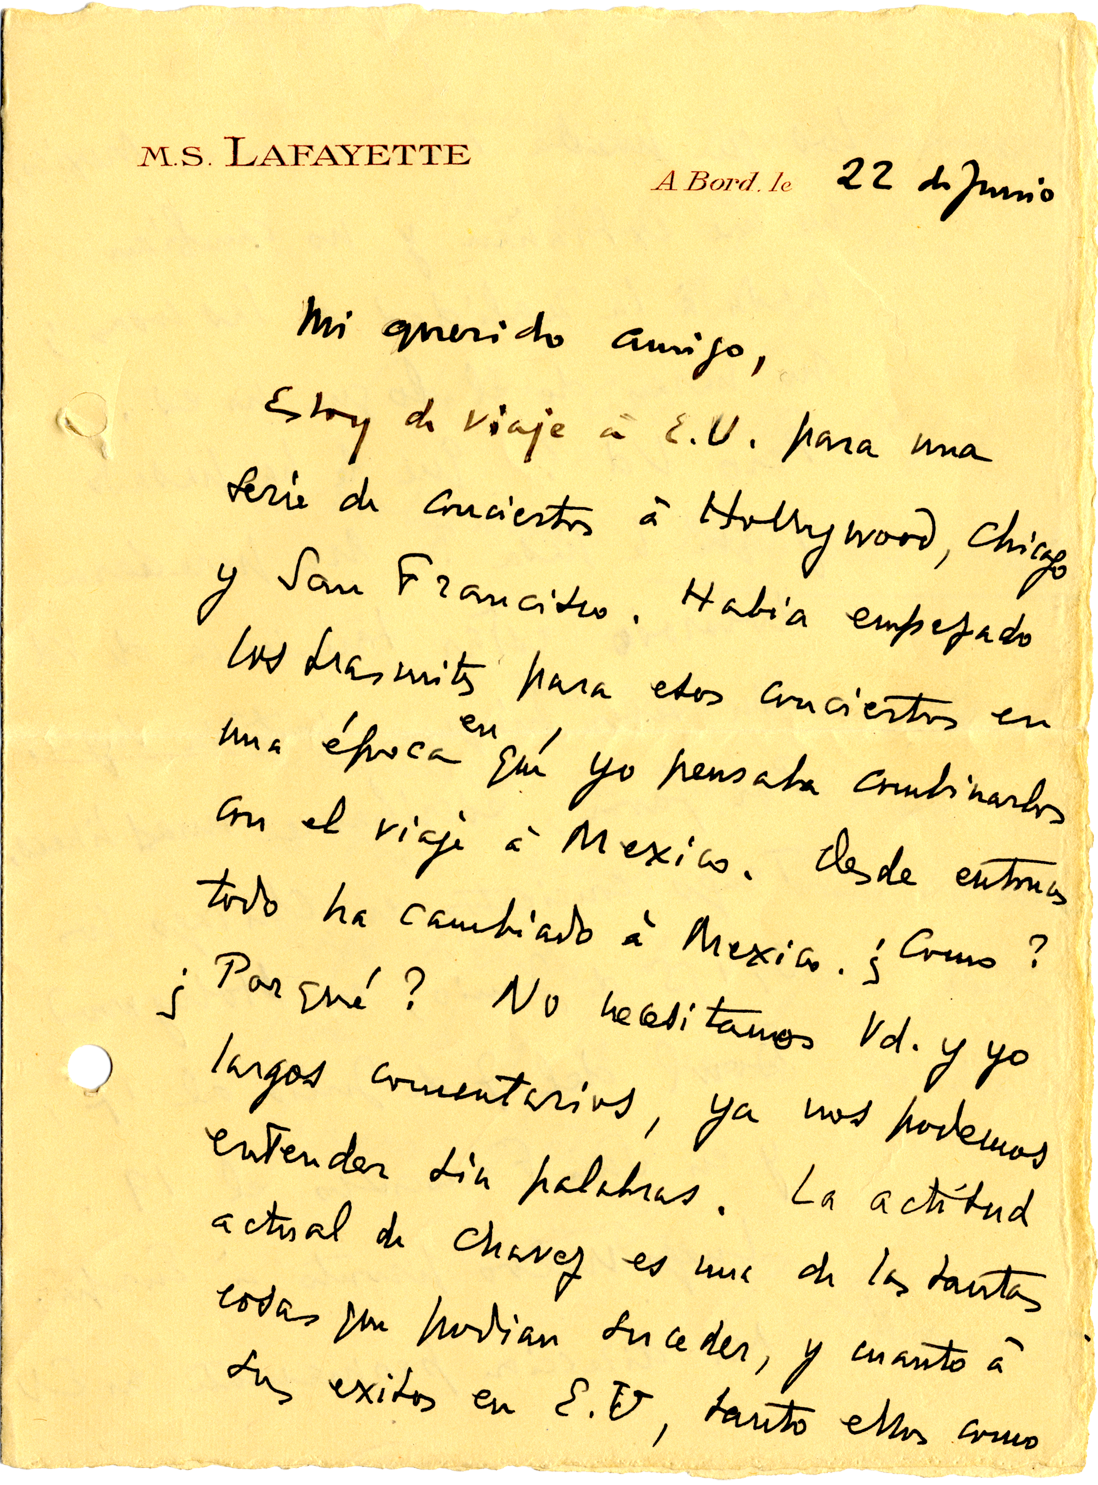 M.S. LAFAYETTE
A Bord. le 22 de Junio
Mi querido amigo,
Estoy de viaje à E.U. para una
serie de conciertos à Hollywood, Chicago
y San Francisco. Habia empezado
los trasmites para esos conciertos en
una época en qué yo pensaba combinarlos
con el viaje à Mexico. Desde entonces
todo ha cambiado à Mexico. ¿Como?
¿Porqué? No necesitamos Vd. y yo
largos comentarios, ya nos podemos
entender sin palabras. La actitud
actual de Chavez es una de las tantas
cosas que podian suceder, y cuanto à
sus exitos en E.U, tanto ellos como